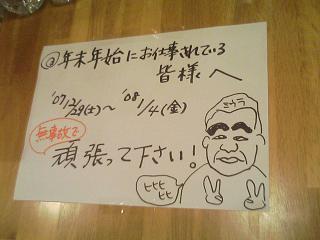 @年末年始にお仕事されている
皆様へ
'07 12/29(土)〜'08 1/4(金)
無事故で
頑張って下さい!
ミウラ
ヒヒヒ
ヒヒ